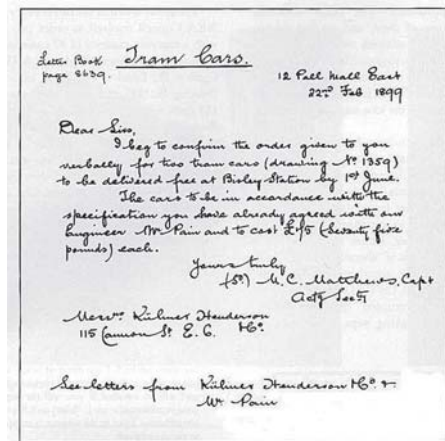 Letter Book
page 8639.
Tram Cars.
12 Pall Mall East
22nd Feb 1899
Dear Sirs,
I beg to confirm the order given to you
verbally for two tram cars (drawing No 1359)
to be delivered free at Bisley Station by 1st June.
The cars to be in accordance with the
specification you have already agreed with our
Engineer Mr Pain and to cost £75 (Seventy five
pounds) each.
Yours truly
(Sd) M.C. Matthews, Capt
Actg Secty
Messrs Külmer Henderson
115 Cannon St E.C.
See letters from Külmer Henderson &
Mr Pain